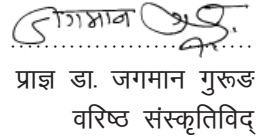 जगमान गुरूङ
प्राज्ञ डा. जगमान गुरूङ
वरिष्ठ संस्कृतिविद्